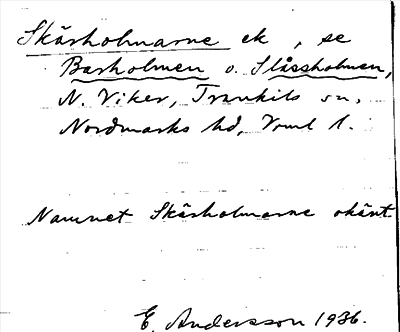 Skärholmarne ek, se
Barholmen o. Slåssholmen,
N. Viker, Trankils sn,
Nordmarks hd, Vrml l.
Namnet Skärholmarne okänt
E. Andersson 1936.